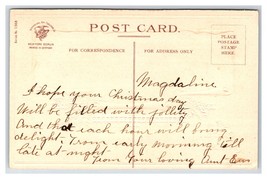 POST CARD.
FOR CORRESPONDENCE
FOR ADDRESS ONLY
PLACE
POSTAGE
STAMP
HERE.
Magdaline
I hope your Christmas day
Will be filled with jollity
And that each hour will bring
delight; From early morning till
late at night.
From Your loving Aunt